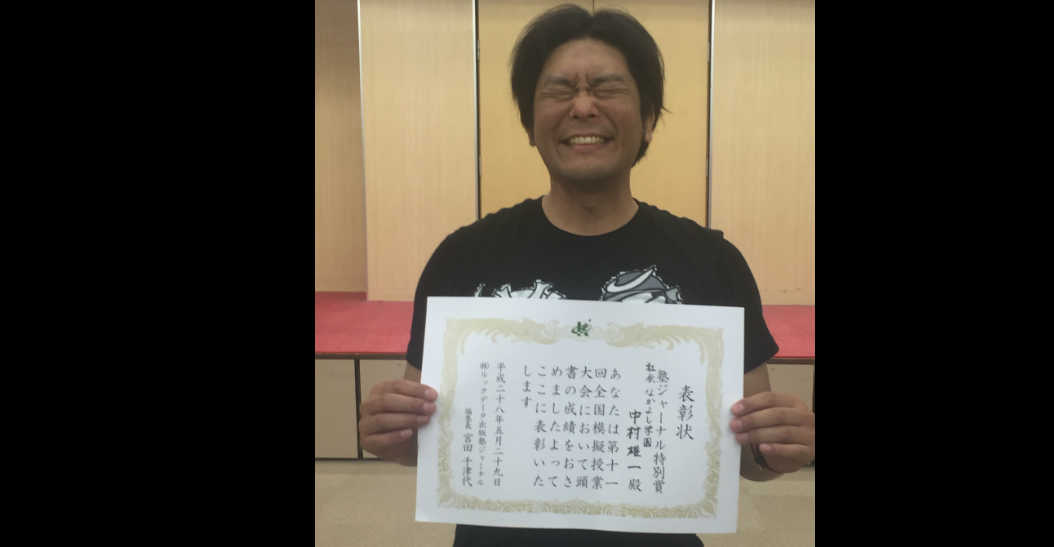 表彰状
塾ジャーナル特別賞
なかよし学園
中村雄一殿
あなたは第十一
回全国模擬授業
大会において頭
書の成績をおさ
めましたよって
ここに表彰いた
します
平成二十八年五月二十九日
㈱ルックデータ出版塾ジャーナル
編集長 宮田千津代